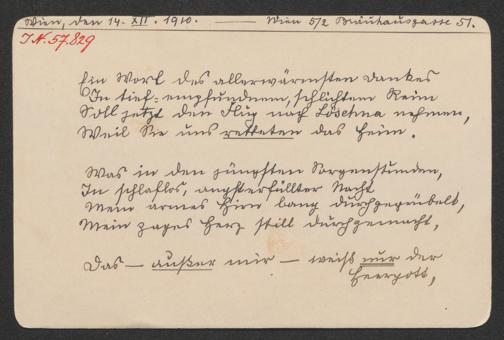 Wien, den 14. XII. 1910. — Wien 5/2 Bräuhausgasse 51.
I.N. 57.829
Ein Wort des allerwärmsten Dankes
In tief-empfundnem, schlichtem Reim
Soll jetzt den Flug nach Löschna nehmen,
Weil Sie uns retteten das Heim.
Was in den jüngsten Sorgenstunden,
In schlaflos, angsterfüllter Nacht
Mein armes Hirn lang durchgegrübelt,
Mein zages Herz still durchgemacht,
Das — außer mir — weiß nur der
Herrgott,